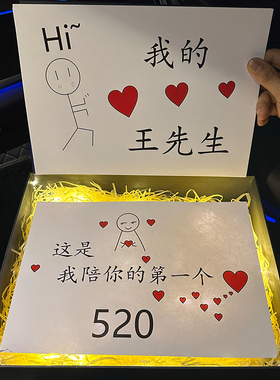 Hi~
我的
王先生
这是
我陪你的第一个
520